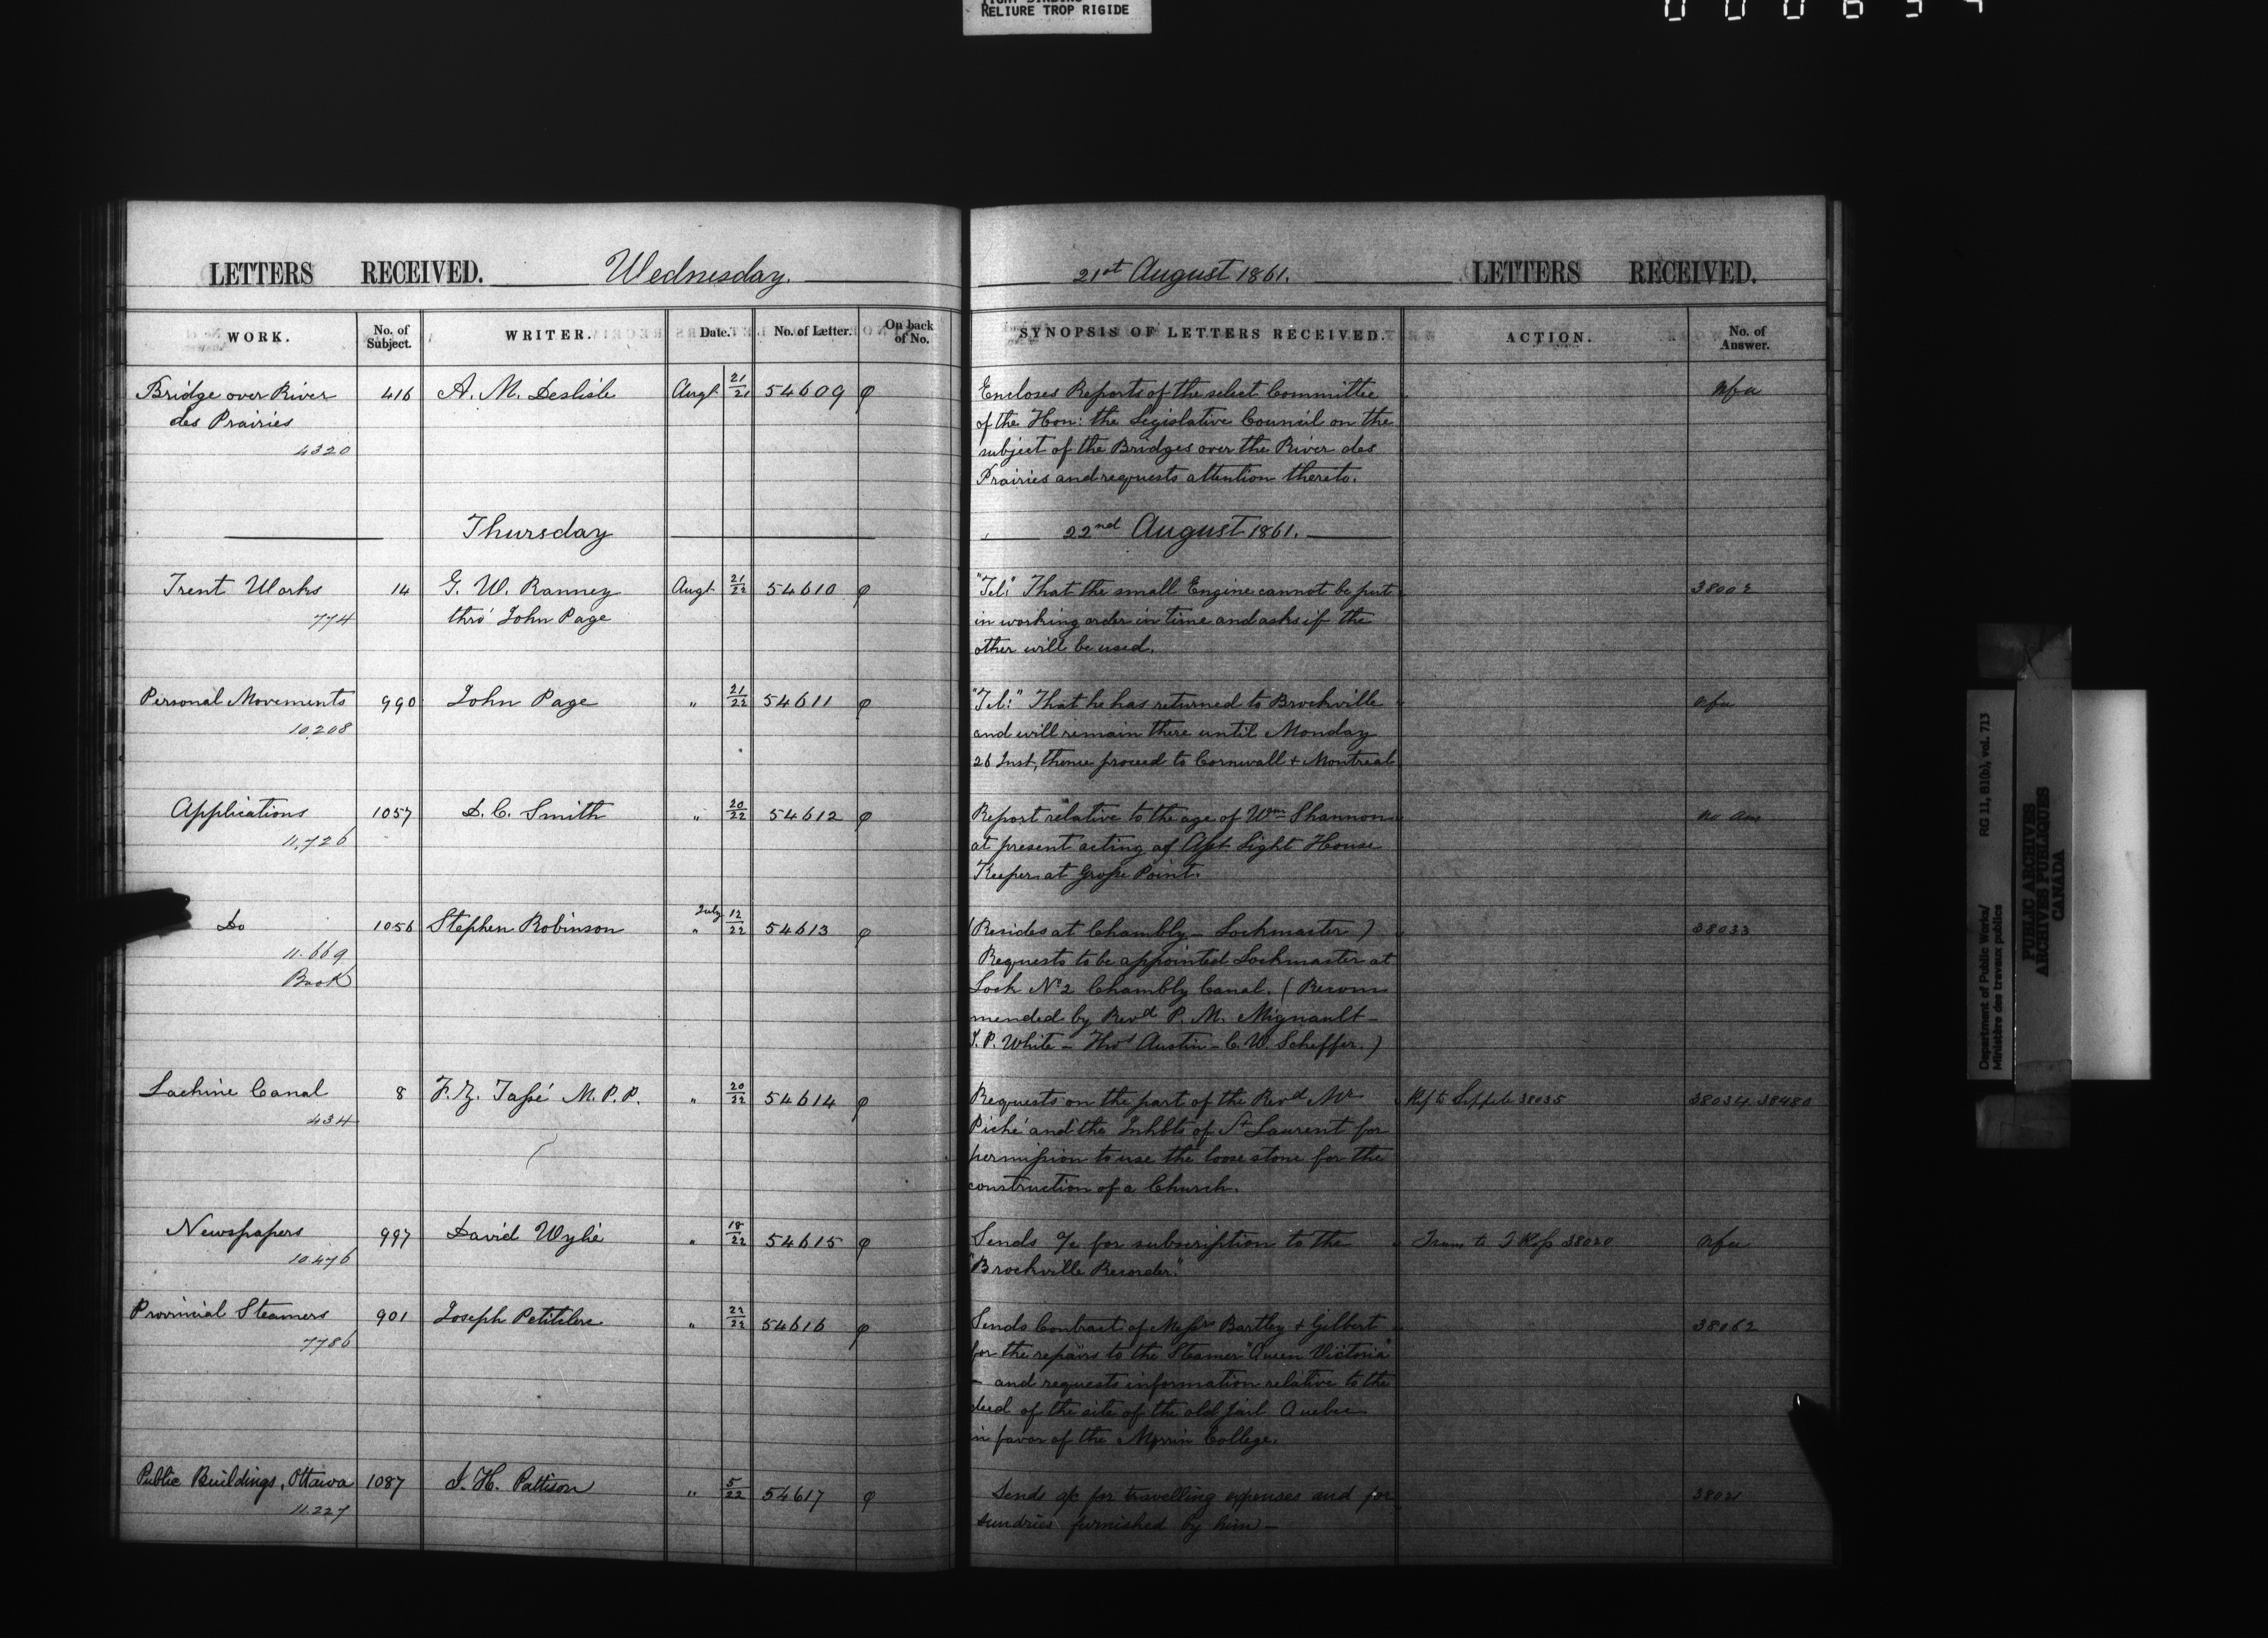 RELIURE TROP RIGIDE
LETTERS RECEIVED. Wednesday. 21st August 1861. LETTERS RECEIVED.
WORK. No. of Subject. WRITER. Date. No. of Letter. On back of No. SYNOPSIS OF LETTERS RECEIVED. ACTION. No. of Answer.
Bridge over River 416 A. M. Deslisle Augt 21/21 54609 φ Encloses Reports of the select Committee nfa
des Prairies of the Hon: the Legislative Council on the
4320 subject of the Bridges over the River des
Prairies and requests attention thereto.
Thursday 22nd August 1861.
Trent Works 14 G. W. Ranney Augt 21/22 54610 φ "Tel:" That the small Engine cannot be put 38002
774 thro' John Page in working order in time and asks if the
other will be used.
Personal Movements 990 John Page " 21/22 54611 φ "Tel:" That he has returned to Brockville nfa
10,208 and will remain there until Monday
26 Inst, thence proceed to Cornwall + Montreal
Applications 1057 D. C. Smith " 20/22 54612 φ Report relative to the age of Wm Shannon no ans
11,726 at present acting as Asst Light House
Keeper at Grape Point.
Do 1056 Stephen Robinson July " 12/22 54613 φ (Resides at Chambly - Lockmaster) 38033
11.669 Requests to be appointed Lockmaster at
Book Lock No 2 Chambly Canal. (Recom
mended by Revd P. M. Mignault -
J. P. White - Thos Austin - C. W. Scheffer.)
Lachine Canal 8 F. Z. Tassé M.P.P. " 20/22 54614 φ Requests on the part of the Revd Mr Ref to Sippell 38035 38034 38480
434 Piché and the Inhbts of St Laurent for
permission to use the loose stone for the
construction of a Church.
Newspapers 997 David Wylie " 18/22 54615 φ Sends a/c for subscription to the Trans to J Ross 38020 nfa
10.476 "Brockville Recorder."
Provincial Steamers 901 Joseph Petitclerc " 22/22 54616 φ Sends Contract of Messrs Bartley + Gilbert 38062
7786 for the repairs to the Steamer "Queen Victoria"
- and requests information relative to the
deed of the site of the old jail Quebec
in favor of the Morrin College.
Public Buildings, Ottawa 1087 J. H. Pattison " 5/22 54617 φ Sends a/c for travelling expenses and for
11.227 sundries furnished by him -
Department of Public Works/ RG 11, B1(b), vol. 713
Ministère des travaux publics
PUBLIC ARCHIVES
ARCHIVES PUBLIQUES
CANADA